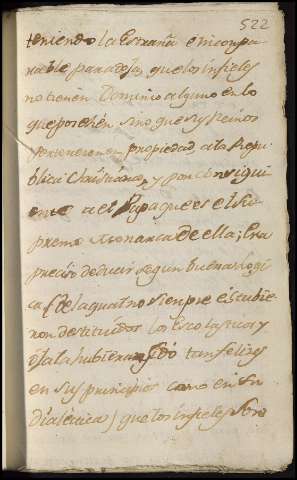 522
teniendo la Estraña é incompa-
rable paradoja, que los infieles
no tienen Dominio alguno en lo
que poséhen sino que sus Reinos
pertenecen en propiedad, a la Repu-
blica Christiana, y por consigui-
ente a el Papa que es el Su-
premo Monarca de ella; Era
preciso decir segun buena Logi-
ca (de la qual no siempre estubie-
ron destituidos los Escolasticos y
ojala hubieran sido tan felizes
en sus principios como en su
dialectica) que los infieles